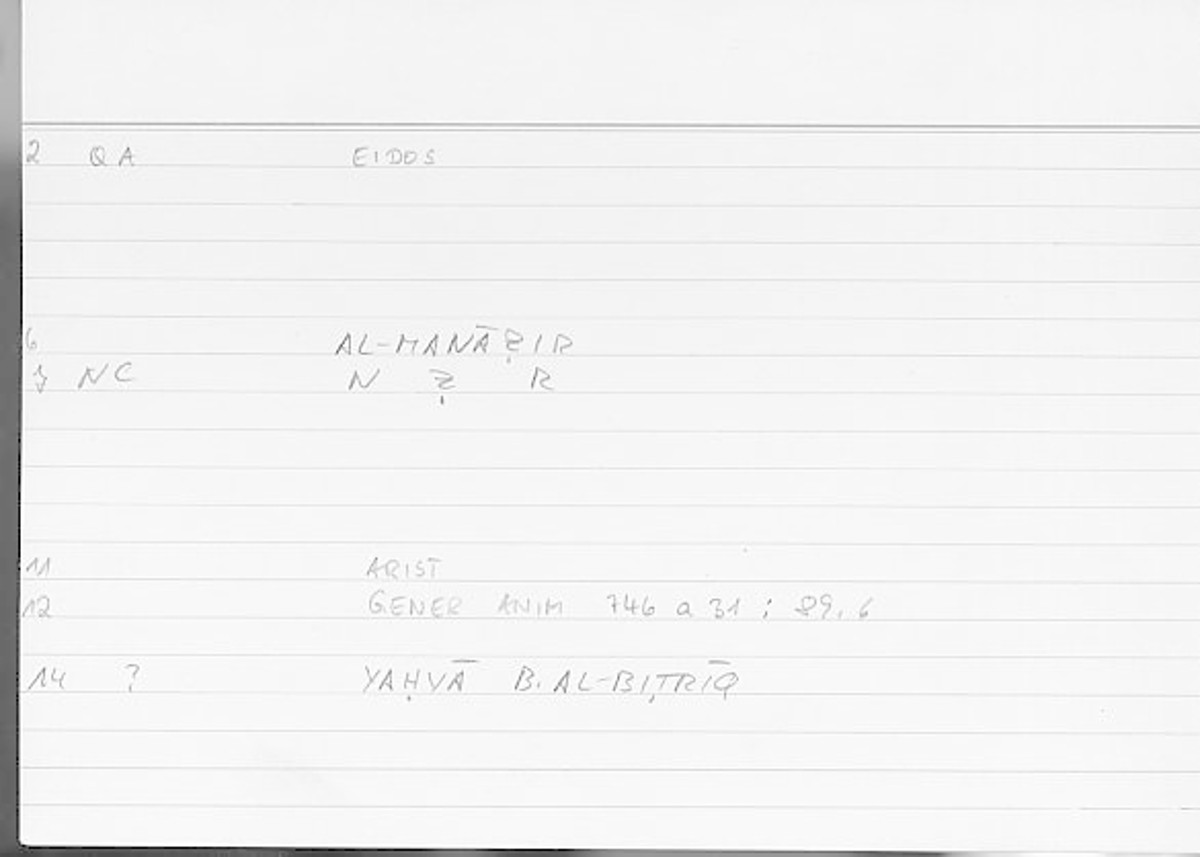 2 QA EIDOS
6 AL-MANĀẒIR
7 NC N Ẓ R
11 ARIST
12 GENER ANIM 746 a 31 ; 89.6
14 ? YAḤYĀ B. AL-BIṬRĪQ